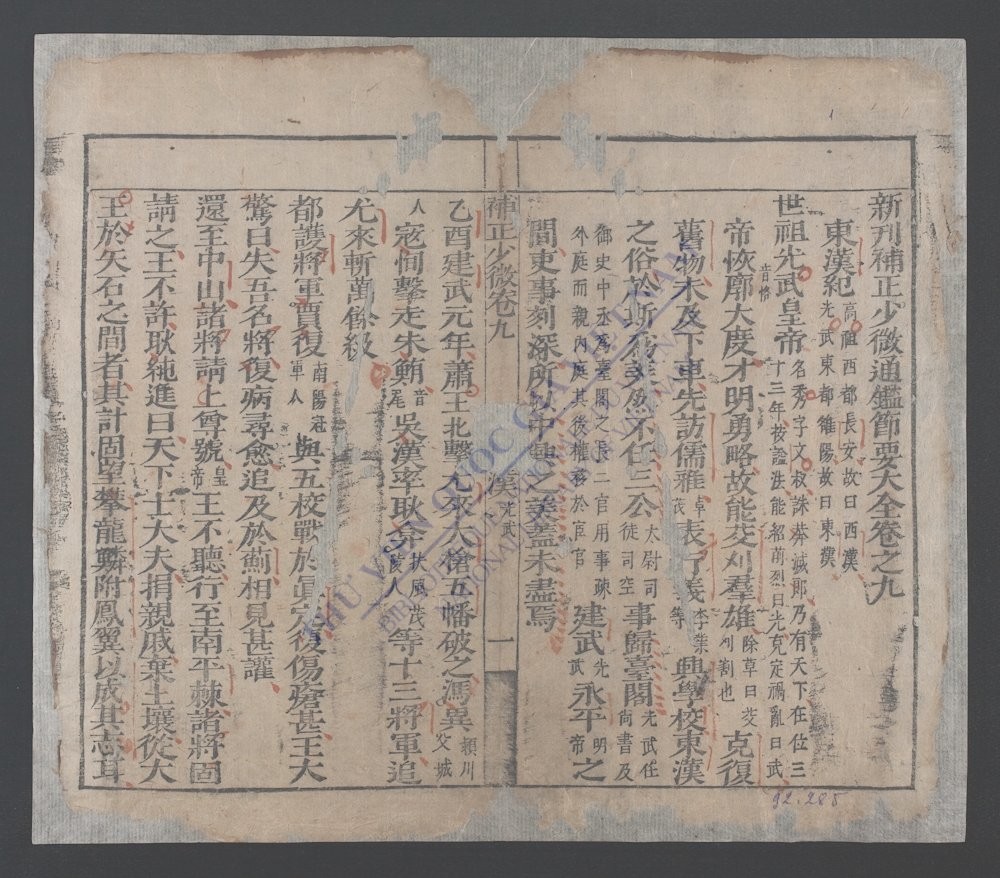 新刊補正少微通鑑節要大全卷之九
東漢紀 高祖西都長安故曰西漢光武東都雒陽故曰東漢
世祖光武皇帝 名秀字文叔誅莽滅郎乃有天下在位三十三年按謚法能紹前烈曰光克定禍亂曰武
帝恢音恪廓大度才明勇略故能芟刈羣雄除草曰芟刈割也克復
舊物未及下車先訪儒雅卓茂表行義李業等興學校東漢
之俗於斯為美然不任三公太尉司徒司空事歸臺閣光武任尚書及
御史中丞為臺閣之長二官用事疎外庭而親內庭其後權移於宦官建武光武永平明帝之
間吏事刻深所以中興之美蓋未盡焉
補正少微卷九 漢光武 一
乙酉建武元年蕭王北擊尤來大槍五幡破之馮異潁川父城
人寇恂擊走朱鮪音尾吳漢率耿弇扶風茂陵人等十三將軍追
尤來斬萬餘級
都護將軍賈復南陽冠軍人與五校戰於眞定復傷瘡甚王大
驚曰失吾名將復病尋愈追及於薊相見甚讙
還至中山諸將請上尊號皇帝王不聽行至南平棘諸將固
請之王不許耿純進曰天下士大夫捐親戚棄土壤從大
王於矢石之間者其計固望攀龍鱗附鳳翼以成其志耳
THƯ VIỆN QUỐC GIA VIỆT NAM
92.285
1